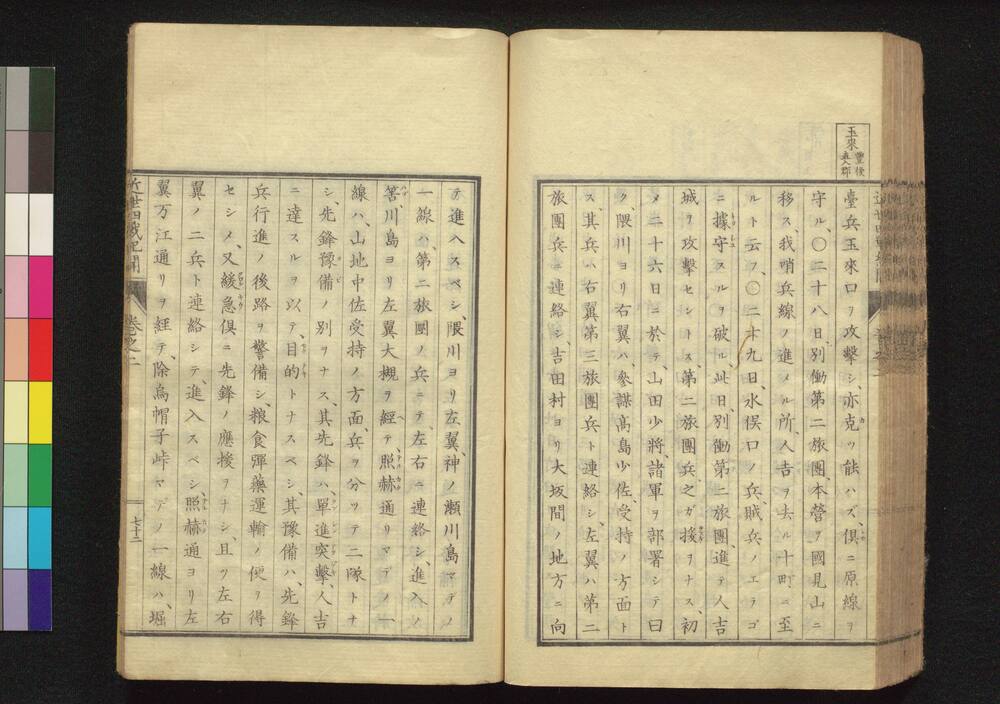 玉來 豐後直入郡
臺兵玉來口ヲ攻擊シ、亦克ツ能ハズ、俱ニ原線ヲ
守ル、〇二十八日、別働第二旅團、本營ヲ國見山ニ
移ス、我哨兵線ノ進メル所、人吉ヲ去ル十町ニ至
ルト云フ、〇二十九日、水俣口ノ兵、賊兵ノエラゴ
ニ據守スルヲ破ル、此日、別働第二旅團、進テ人吉
城ヲ攻擊セントス、第二旅團兵、之ガ援ヲナス、初
メ二十六日ニ於テ、山田少將、諸軍ヲ部署シテ曰
ク、隈川ヨリ右翼ハ、參謀高島少佐、受持ノ方面ト
ス、其兵ハ右翼第三旅團兵ト連絡シ、左翼ハ第二
旅團兵ニ連絡シ、吉田村ヨリ大坂間ノ地方ニ向
テ進入スベシ、隈川ヨリ左翼、神ノ瀨川島マデノ
一線ハ、第二旅團ノ兵ニテ、左右ニ連絡シ、進入ノ
筈、川島ヨリ左翼大槻ヲ經テ、照赫通リマデノ一
線ハ、山地中佐受持ノ方面、兵ヲ分ツテ二隊トナ
シ、先鋒豫備ノ別ヲナス、其先鋒ハ、單進突擊、人吉
ニ達スルヲ以テ、目的トナスベシ、其豫備ハ、先鋒
兵行進ノ後路ヲ警備シ、粮食彈藥運輸ノ便ヲ得
セシメ、又緩急俱ニ先鋒ノ應援ヲナシ、且ツ左右
翼ノ二兵ト連絡シテ、進入スベシ、照赫通ヨリ左
翼、万江通リヲ經テ、除烏帽子峠マデノ一線ハ、堀
卷之二
七十二